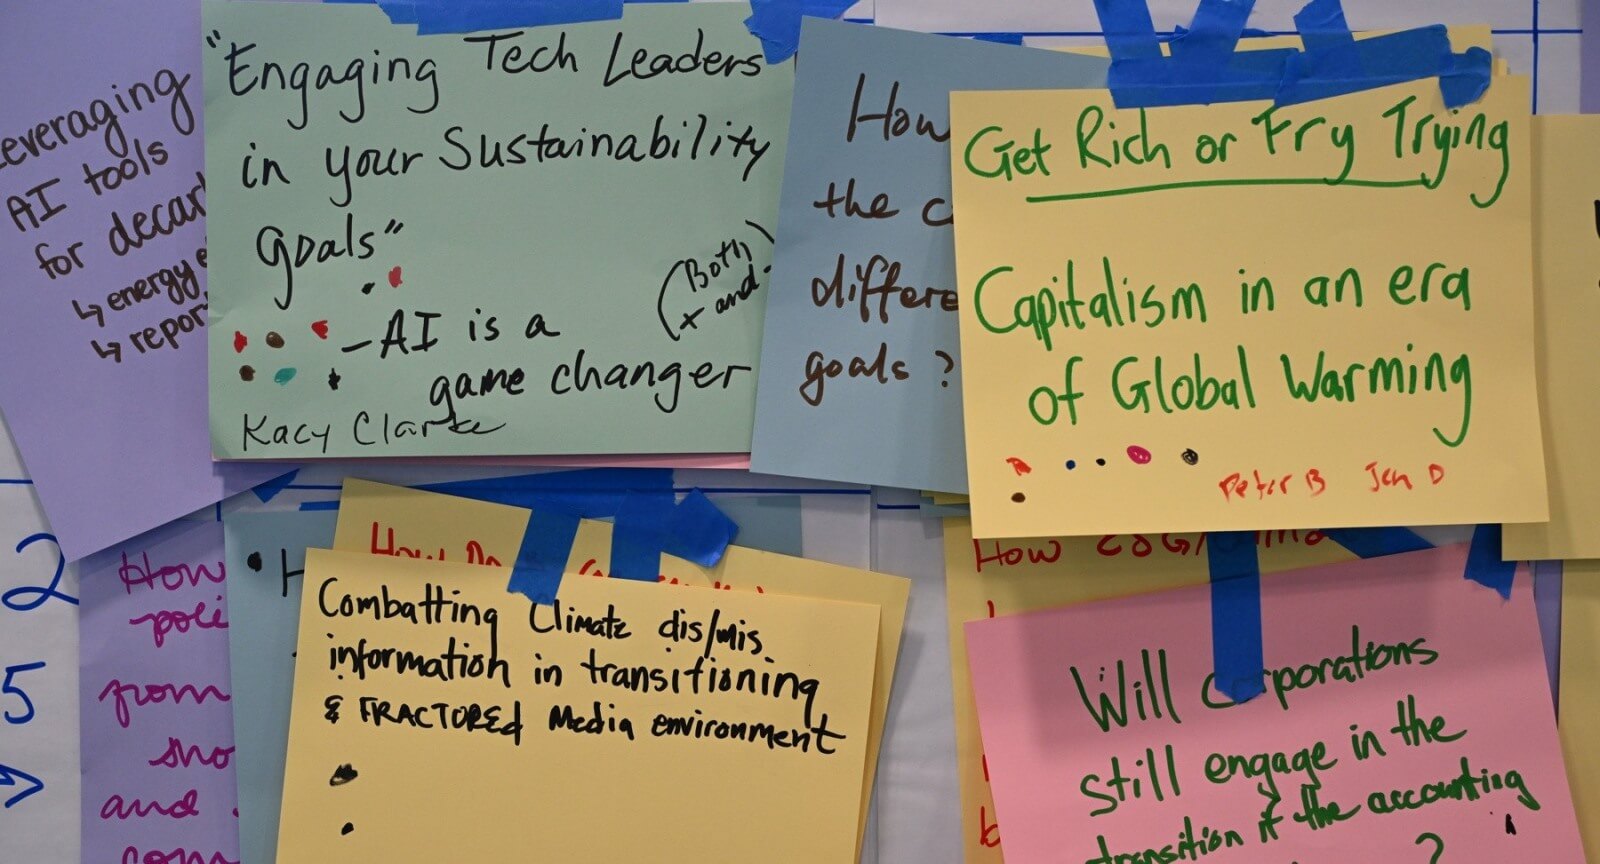 Leveraging
AI tools
for decar
↳ energy e
↳ repor
"Engaging Tech Leaders
in your Sustainability
goals"
(Both
+ and)
- AI is a
game changer
Kacy Clarke
How
the c
differe
goals ?
Get Rich or Fry Trying
Capitalism in an era
of Global Warming
Peter B Jen D
2
5
How
poli
from
sho
and
com
H
How Do
Combatting Climate dis/mis
information in transitioning
& FRACTUREd Media environment
How ESG/
Will Corporations
still engage in the
transition if the accounting
?